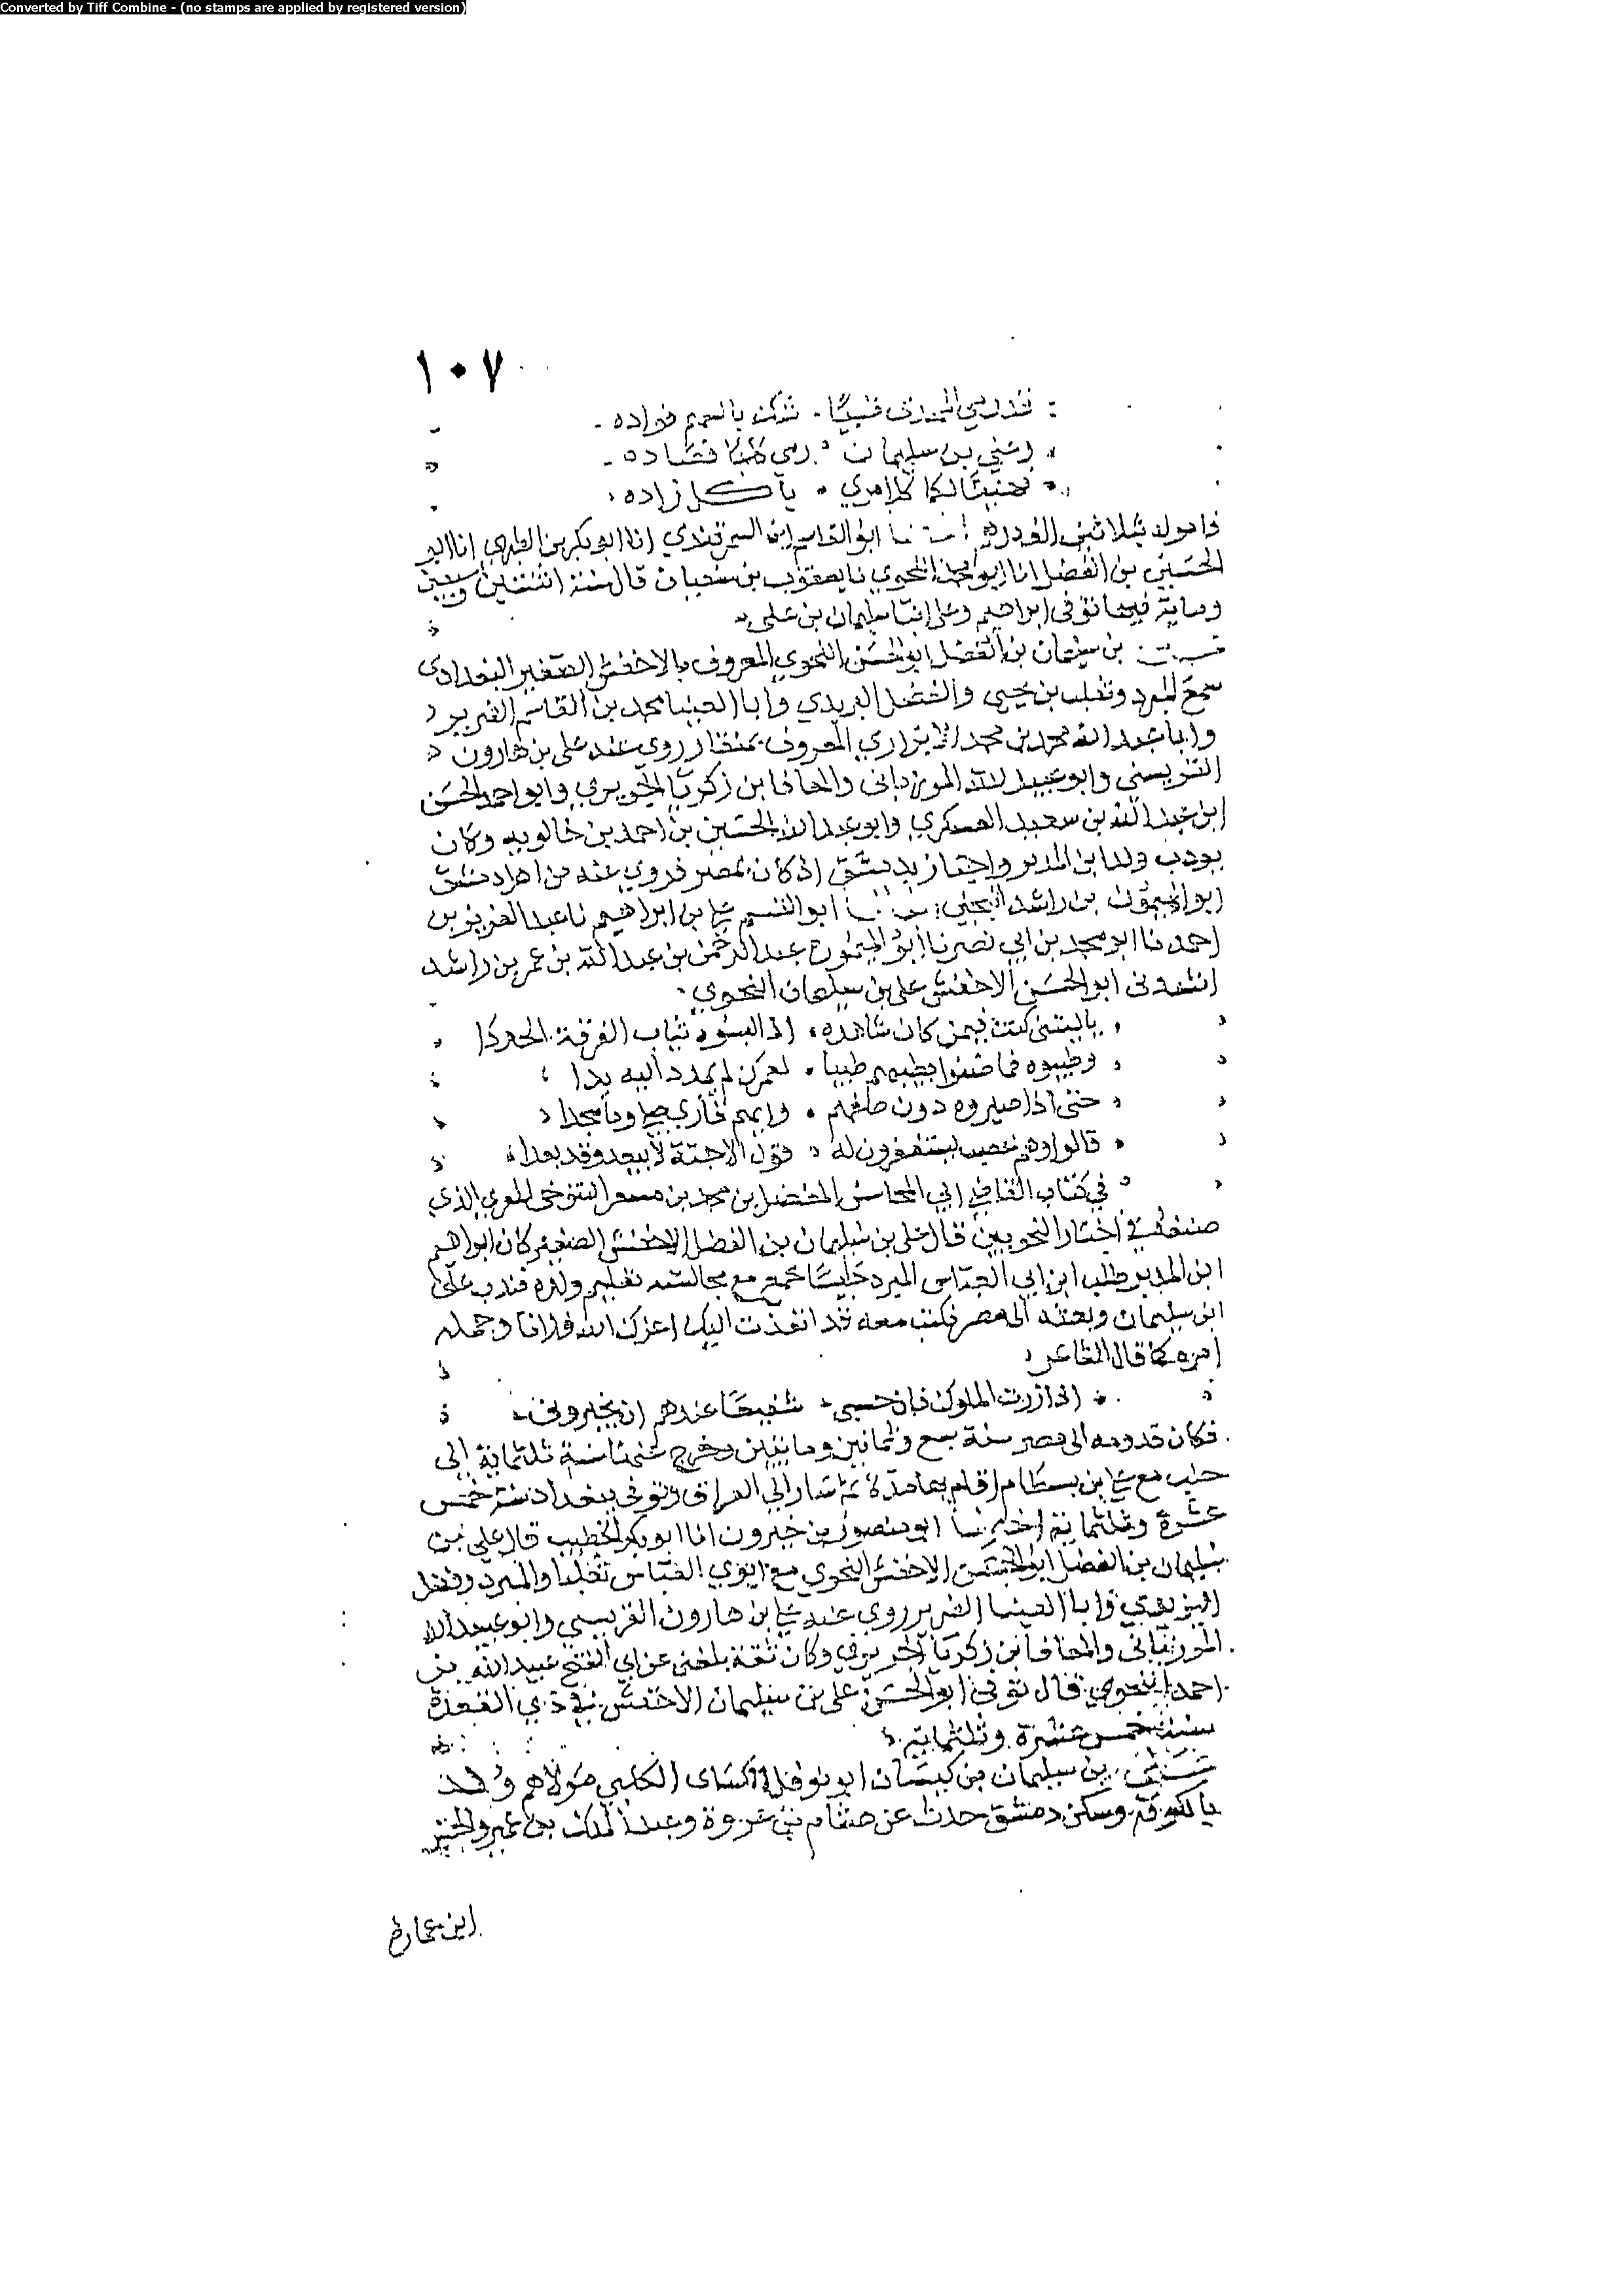 Converted by Tiff Combine - (no stamps are applied by registered version)
١٠٧
قد رمى المهدي ظبيا شك بالسهم فؤاده
وعلي بن سليمان رمى كلبا فصاده
فهنيئا لكما كل امرئ يأكل زاده
فامر له بثلاثين الف درهم ابو القاسم ابن السمرقندي انا ابو بكر بن الطبري انا ابو
الحسين بن الفضل انا ابو محمد النحوي نا يعقوب بن سفيان قال سنة اثنتين وسبعين
وماية فيها توفى ابراهيم وعلي ابنا سليمان بن علي
بن سليمان بن الفضل ابو الحسن النحوي المعروف بالاخفش الصغير البغدادى
سمع المبرد وثعلب بن يحيى والفضل اليزيدي وأبا العينا محمد بن القاسم الضرير
وابا عبد الله محمد بن محمد الابزاري المعروف بمنقار روي عنه على بن هارون
القرميسني وابو عبيد الله المرزبانى والمعافا بن زكريا الجريري وابو احمد الحسن
ابن عبد الله بن سعيد العسكري وابو عبد الله الحسين بن احمد بن خالويه وكان
يودب ولد ابن المدبر واجتاز بدمشق اذ كان بمصر فروي عنه من اهل دمشق
ابو الميمون بن راشد البجلي ابو القسم علي بن ابراهيم نا عبد العزيز بن
احمد نا ابو محمد بن ابي نصر نا ابو الميمون عبد الرحمن بن عبد الله بن عمر بن راشد
انشدنى ابو الحسن الاخفش على بن سليمان النحوي
ياليتني كنت فيمن كان شاهده اذ البسوه ثياب الفرقة الجددا
وطيبوه فما ضنوا بطيبهم طيبا لعمرك لم يمدد اليه يدا
حتى اذا صيروه دون صفهم وامهم قاري صلى وما سجدا
قالوا وهم عصب يستغفرون له قول الاحبة لا يبعد وقد بعدا
في كتاب القاضي ابي المحاسن المفضل بن محمد بن مسعر التنوخى المعري الذي
صنفه في اخبار النحويين قال على بن سليمان بن الفضل الاخفش الصغير كان ابراهيم
ابن المدبر طلب ابن ابي العباس المبرد جليسا يجمع مع مجالسته تعليم ولده فندب على
ابن سليمان وبعثه الى مصر وكتب معه قد انفذت اليك اعزك الله فلانا وجملة
امره كما قال الشاعر
اذا زرت الملوك فان حسبى شفيعا عندهم ان يخبرونى
فكان قدومه الى مصر سنة سبع وثمانين وماتيين وخرج عنها سنة ثلثماية إلى
حلب مع علي بن بسطام اقام بها مدة ثم سار الي العراق وتوفى ببغداد سنة خمس
عشرة وثلثماية اخبرنا ابو منصور بن خيرون انا ابو بكر الخطيب قال على بن
سليمان بن الفضل ابو الحسن الاخفش النحوي سمع ابوي العباس ثعلبا والمبرد وفضل
اليزيدي وابا العينا الضرير روي عنه علي بن هارون القرميسي وابو عبيد الله
المرزبانى والمعافا بن زكريا الجريري وكان ثقة بلغنى عن ابي الفتح عبيد الله بن
احمد النحوي قال توفي ابو الحسن على بن سليمان الاخفش في ذي القعدة
سنة خمس عشرة وثلثماية
بن سليمان بن كيسان ابو نوفل الكلبي مولاهم ولد
بالكوفة وسكن دمشق حدث عن هشام بن عروة وعبد الملك بن عمير والحسن
ابن عمارة